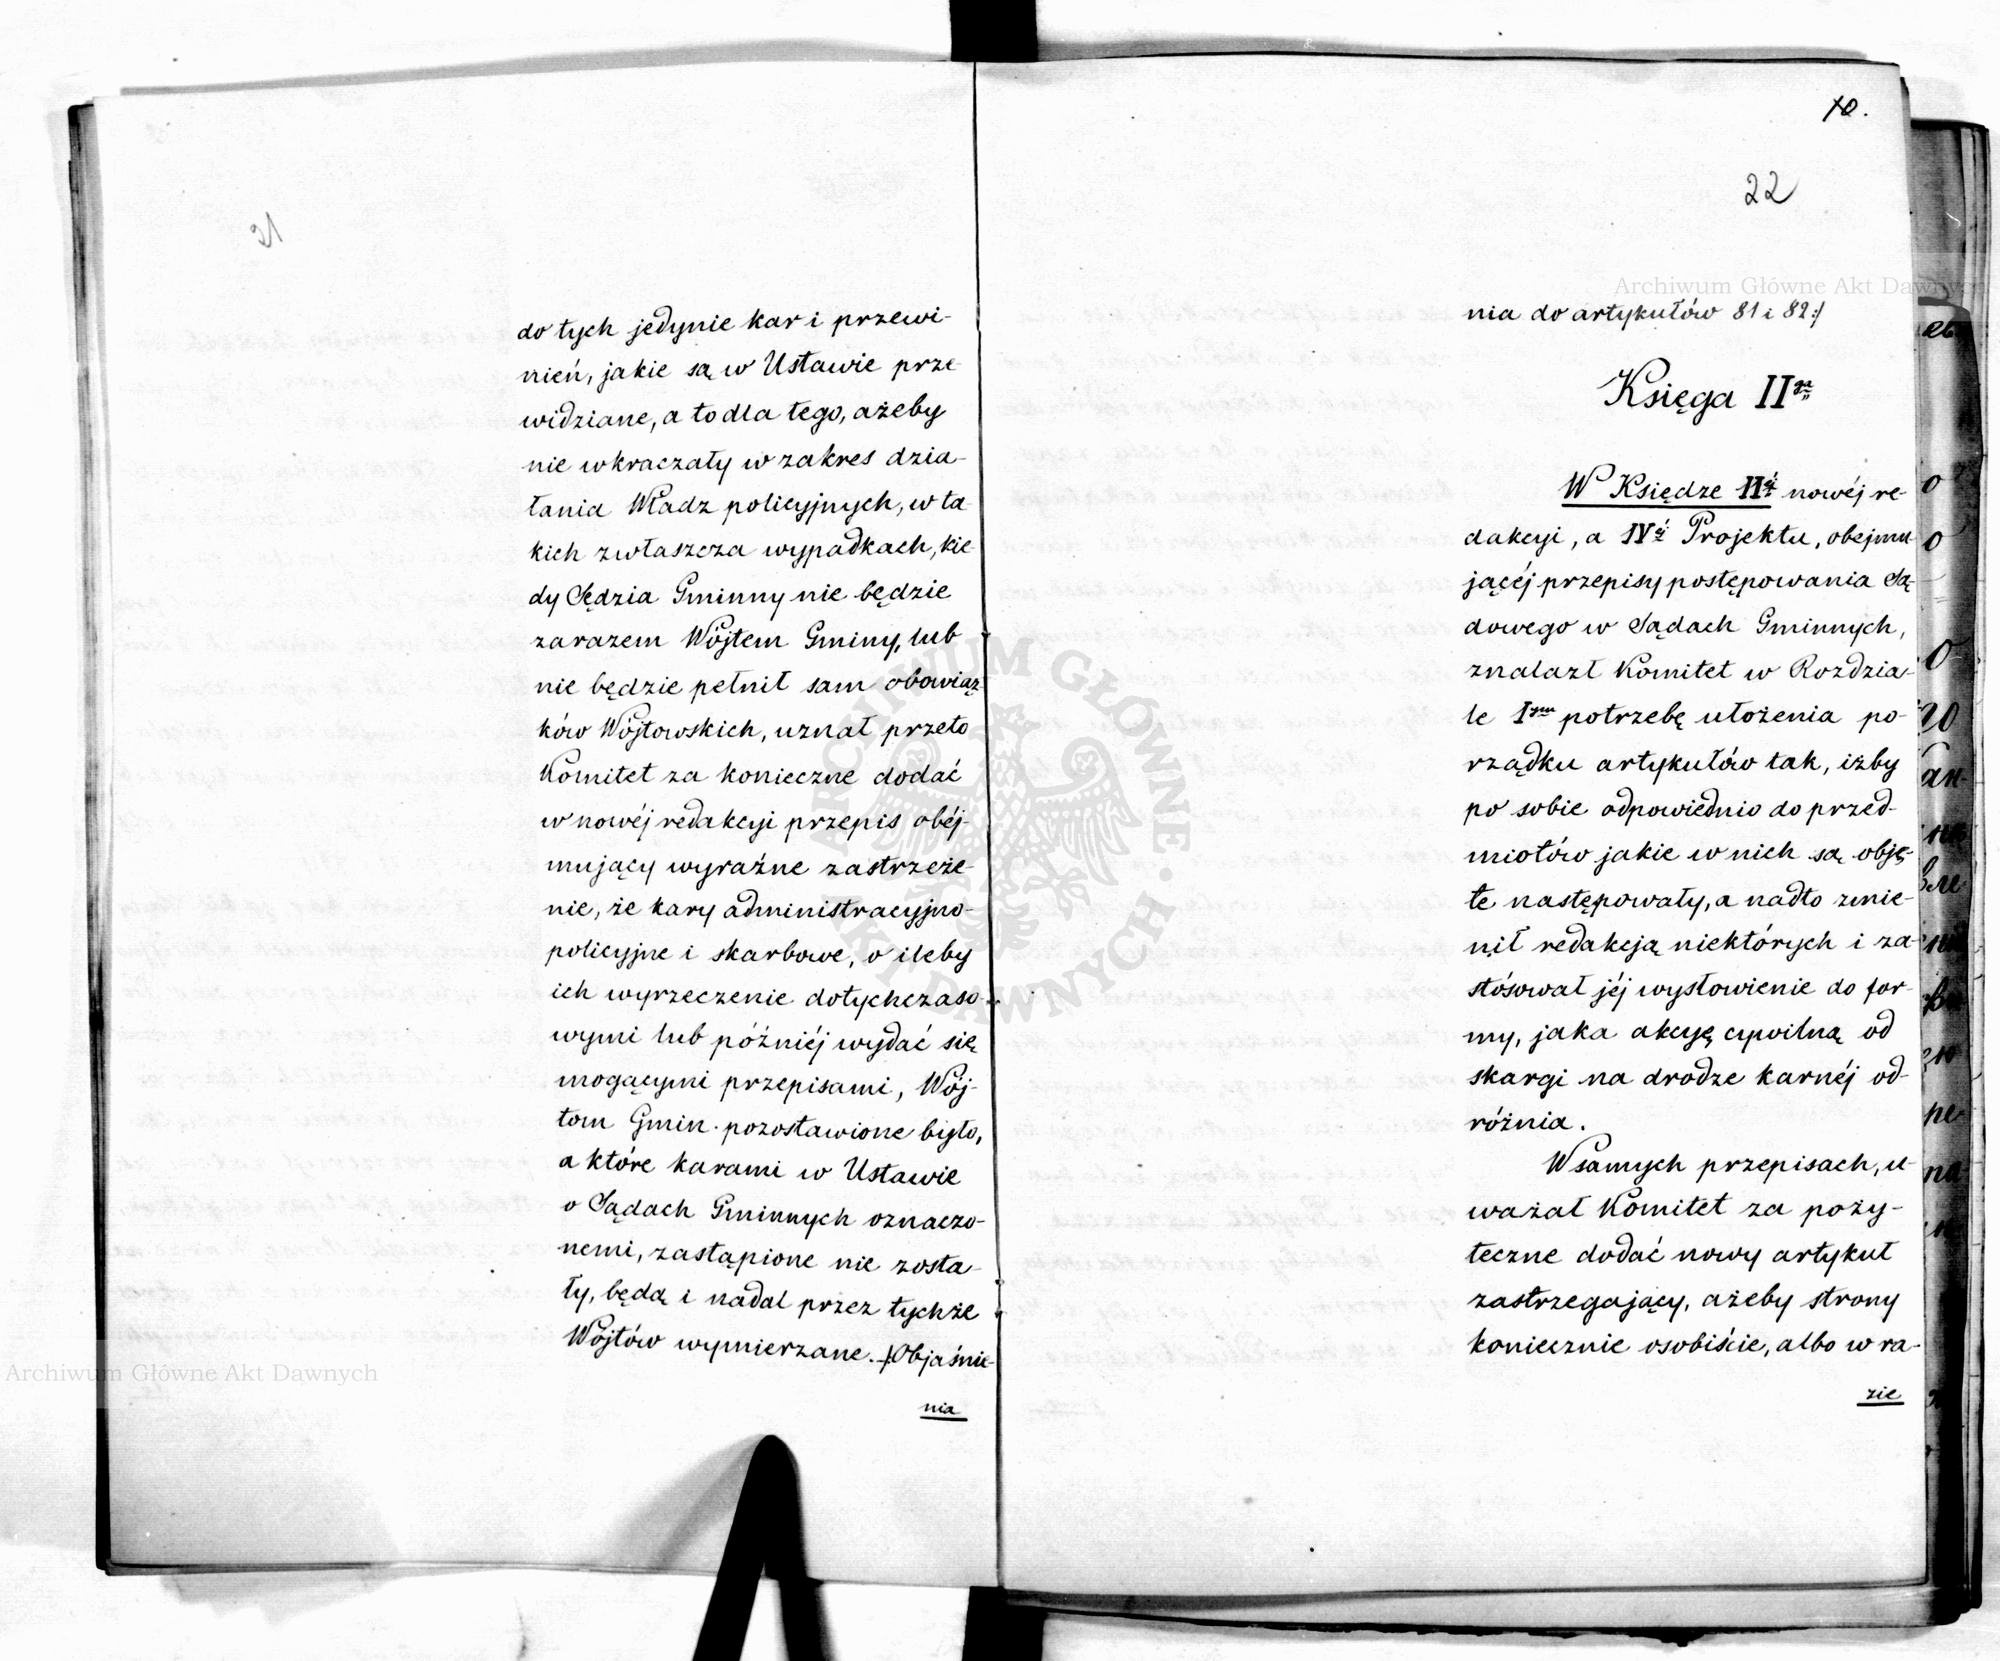 21
do tych jedynie kar i przewi-
nień, jakie są w Ustawie prze-
widziane, a to dla tego, ażeby
nie wkraczały w zakres dzia-
łania Władz policyjnych, w ta-
kich zwłaszcza wypadkach, kie-
dy Sędzia Gminny nie będzie
zarazem Wójtem Gminy, lub
nie będzie pełnił sam obowiąz-
ków Wójtowskich, uznał przeto
Komitet za konieczne dodać
w nowéj redakcyi przepis obéj-
mujący wyraźne zastrzeże-
nie, że kary administracyjno-
policyjne i skarbowe, o ileby
ich wyrzeczenie dotychczaso-
wymi lub późniéj wydać się
mogącymi przepisami, Wój-
tom Gmin pozostawione było,
a które karami w Ustawie
o Sądach Gminnych oznaczo-
nemi, zastąpione nie zosta-
ły, będą i nadal przez tychże
Wójtów wymierzane. /:Objaśnie-
nia
10.
22
nia do artykułów 81 i 82:/
Księga IIga
W Księdze IIéj nowéj re-
dakcyi, a IVéj Projektu, obejmu-
jącéj przepisy postępowania Są-
dowego w Sądach Gminnych,
znalazł Komitet w Rozdzia-
le Iym potrzebę ułożenia po-
rządku artykułów tak, iżby
po sobie odpowiednio do przed-
miotów jakie w nich są obję-
te następowały, a nadto zmie-
nił redakcją niektórych i za-
stósował jéj wysłowienie do for-
my, jaka akcyę cywilną od
skargi na drodze karnéj od-
różnia.
W samych przepisach, u-
ważał Komitet za poży-
teczne dodać nowy artykuł
zastrzegający, ażeby strony
koniecznie osobiście, albo w ra-
zie
Archiwum Główne Akt Dawnych
Archiwum Główne Akt Dawnych
ARCHIWUM GŁÓWNE AKT DAWNYCH